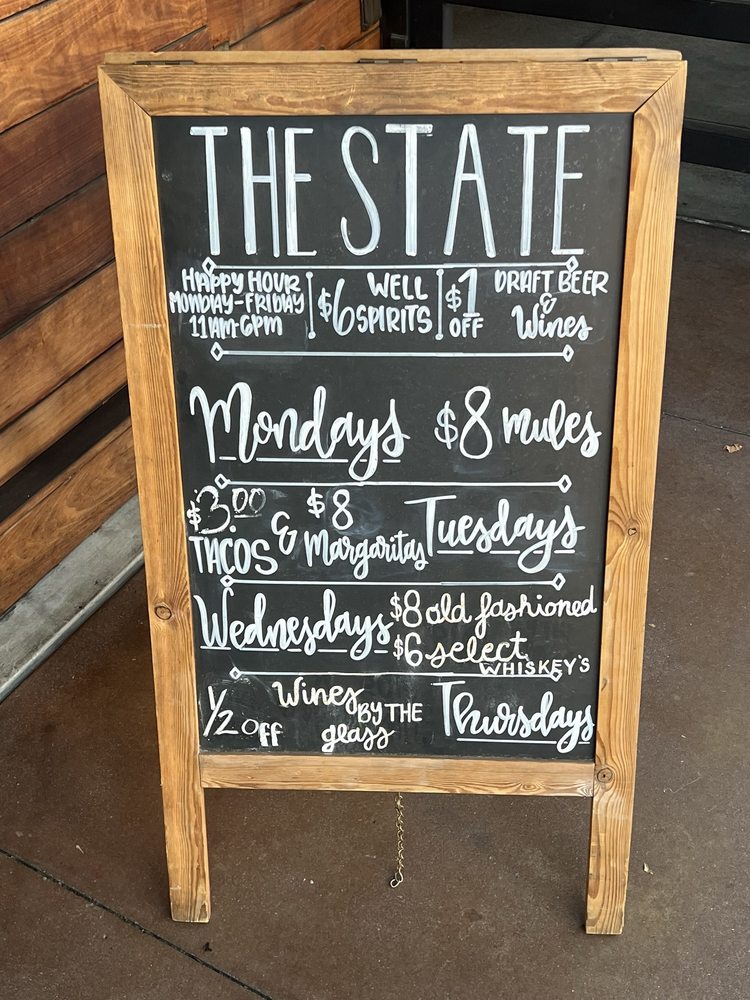 THE STATE
HAPPY HOUR
MONDAY-FRIDAY
11AM-6PM
$6 WELL SPIRITS
$1 OFF
DRAFT BEER
&
Wines
Mondays $8 mules
$3.00 TACOS & $8 Margaritas Tuesdays
Wednesdays $8 old fashioned
$6 select WHISKEY'S
1/2 OFF Wines BY THE glass Thursdays